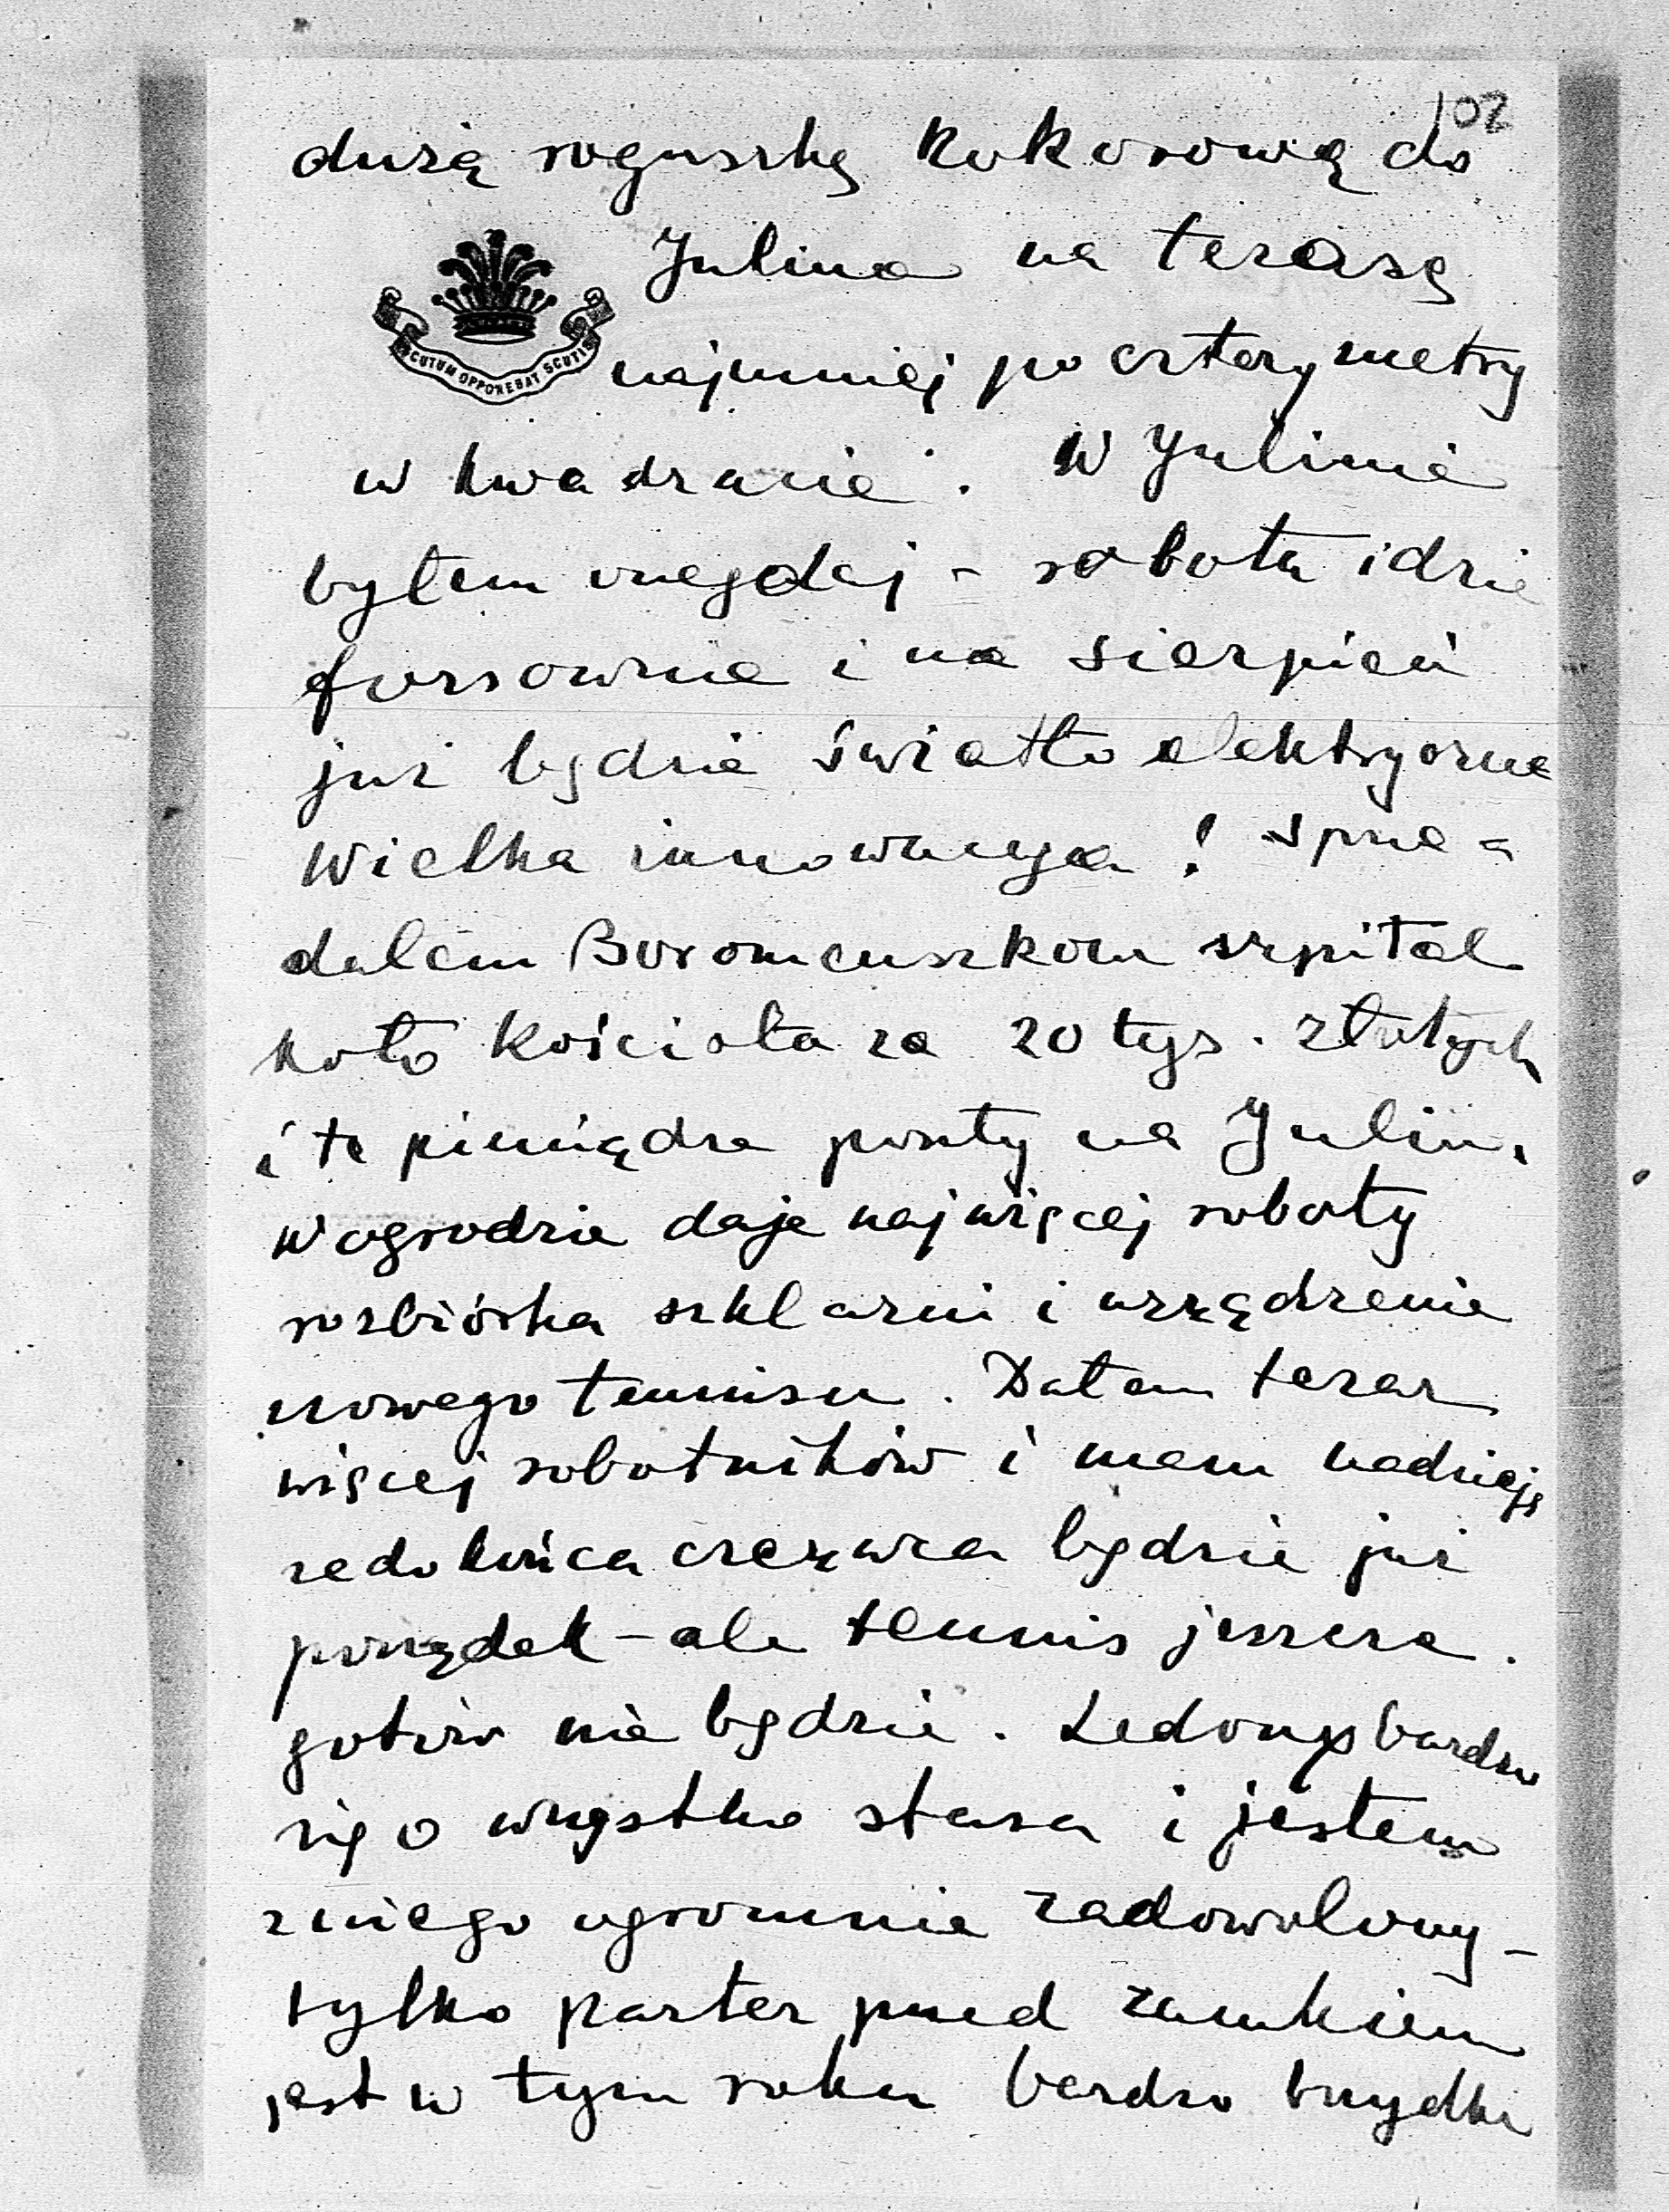 102
dużą roguszkę kokosową do
Julina na terasę
SCUTUM OPPONEBAT SCUTIS
najmniej po cztery metry
w kwadracie. W Julinie
byłem onegdaj – robota idzie
forsownie i na sierpień
już będzie światło elektryczne
Wielka innowacya! Sprze-
dałem Boromeuszkom szpital
koło kościoła za 20 tys. złotych
i te pieniądze poszły na Julin.
W ogrodzie daje najwięcej roboty
rozbiórka szklarni i urządzenie
nowego tennisu. Dałem teraz
więcej robotników i mam nadzieję
że do końca czerwca będzie już
porządek – ale tennis jeszcze
gotów nie będzie. Ledoux bardzo
się o wszystko stara i jestem
z niego ogromnie zadowolony –
tylko parter przed zamkiem
jest w tym roku bardzo brzydki